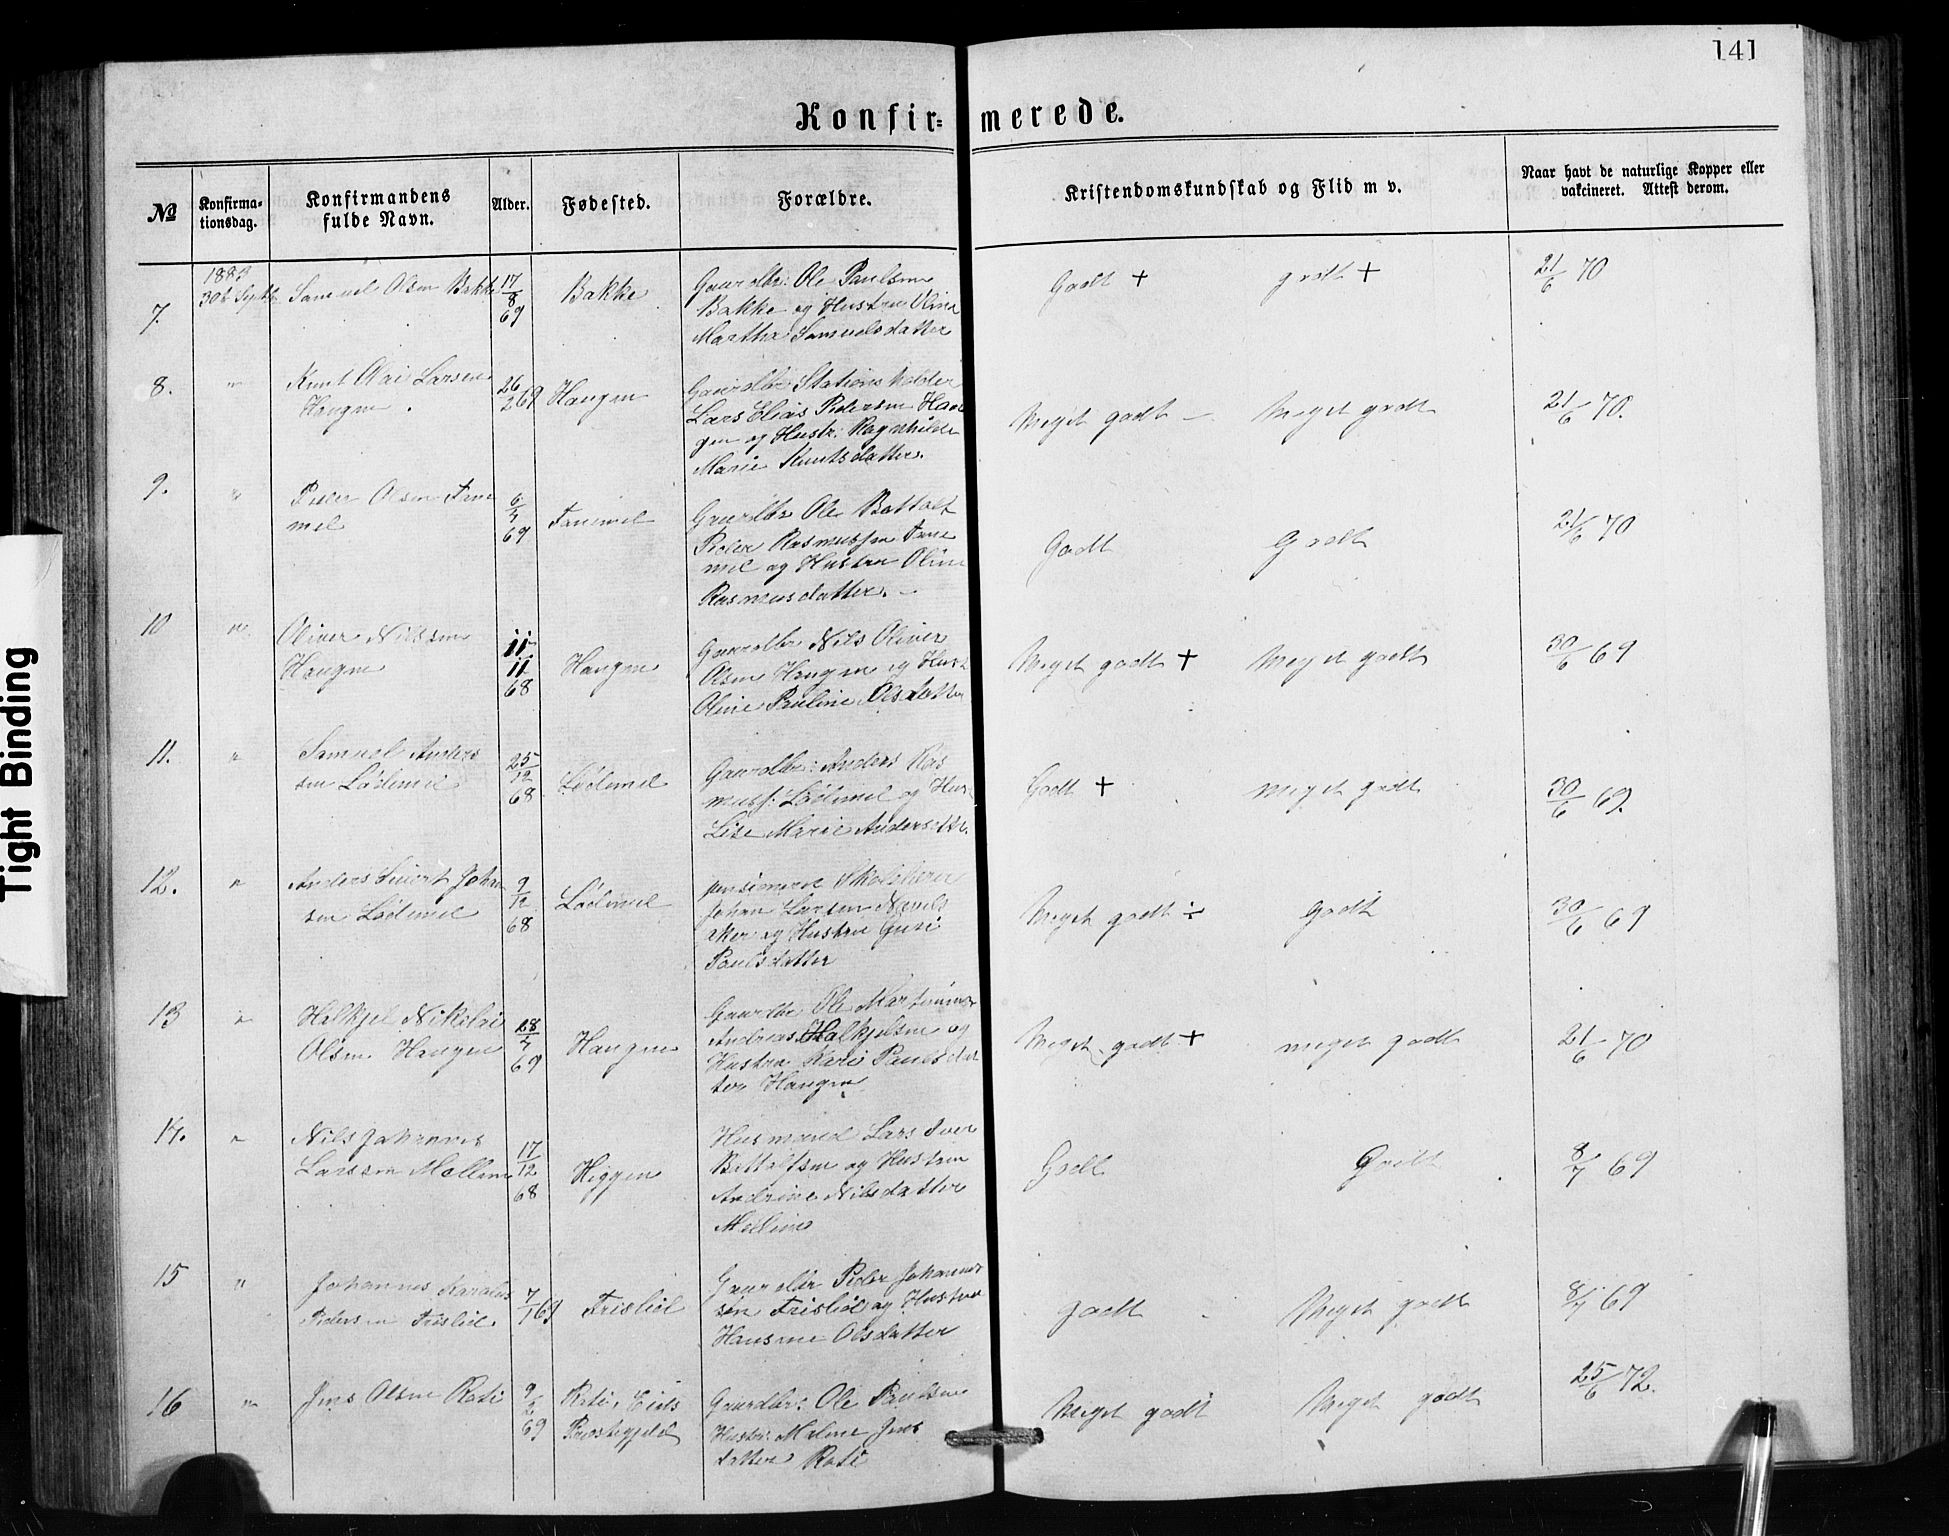 141
Konfir= merede.
№
Konfirma-
tionsdag.
Konfirmandens
fulde Navn.
Alder.
Fødested.
Forældre.
Kristendomskundskab og Flid m v.
Naar havt de naturlige Kopper eller
vakcineret. Attest derom.
7.
1883
30te Septb
Samuel Olsen Bakke
17/8 69
Bakke
Gaardbr: Ole Paulsen
Bakke og Hustru Oline
Martha Samuelsdatter
Godt + godt +
21/6 70
8.
"
Knut Olai Larsen
Haugen
26/2 69
Haugen
Gaardbr: Stationsholder
Lars Elias Pedersen Hau
gen og Hustr: Ragnhilde
Marie Knutsdatter.
Meget godt - Meget godt
21/6 70.
9.
"
Peder Olsen
mel
69
Gaardbr Ole
Peder Rasmussen
mel og Hustru Oline
Rasmusdatter. -
Godt Godt
21/6 70
10
"
Oliver Nilssen
Haugen
11/11 68
Haugen
Gaardbr Nils Oliver
Olsen Haugen og Hust
Oline Pauline Olsdatter
Meget godt + Meget godt
30/6 69
11.
"
Samuel Anders
sen Lødemel
25/12 68
Lødemel
Gaardbr: Anders Ras
muss: Lødemel og Hust
Lise Marie Andersdtr.
Godt + meget godt
30/6 69.
12.
"
Anders Sivert Johan
sen Lødemel
9/12 68
Lødemel
pensioneret Skolelærer
Johan Larsen
aker og Hustru Guri
Paulsdatter
Meget godt ÷ godt
30/6 69
13
"
Halkjel Nikolai
Olsen Haugen
28/ 69
Haugen
Gaardbr Ole Martinus
Andreas Halkjelsen og
Hustru Kari Paulsdat
ter Haugen
Meget godt + meget godt
21/6 70
14.
"
Nils Johannes
Larssen Mellem
17/12 68
Higgem
Husmand Lars Iver
Bottolfsen og Hustru
Andrine Nilsdatter
Godt Godt
8/7 69
15
"
Johannes Karolus
Pedersen Frisliel
7/1 69
Frisliel
Gaardbr Peder Johannes
sen Frisliel og Hustru
Hansine Olsdatter
godt Meget godt
8/7 69
16
"
Jens Olsen
9/2 69
Eids
Præstegjeld
Gaardbr: Ole Paulsen
Hustr: Malene Jens
datter
Meget godt Meget godt
25/6 72.
Tight Binding